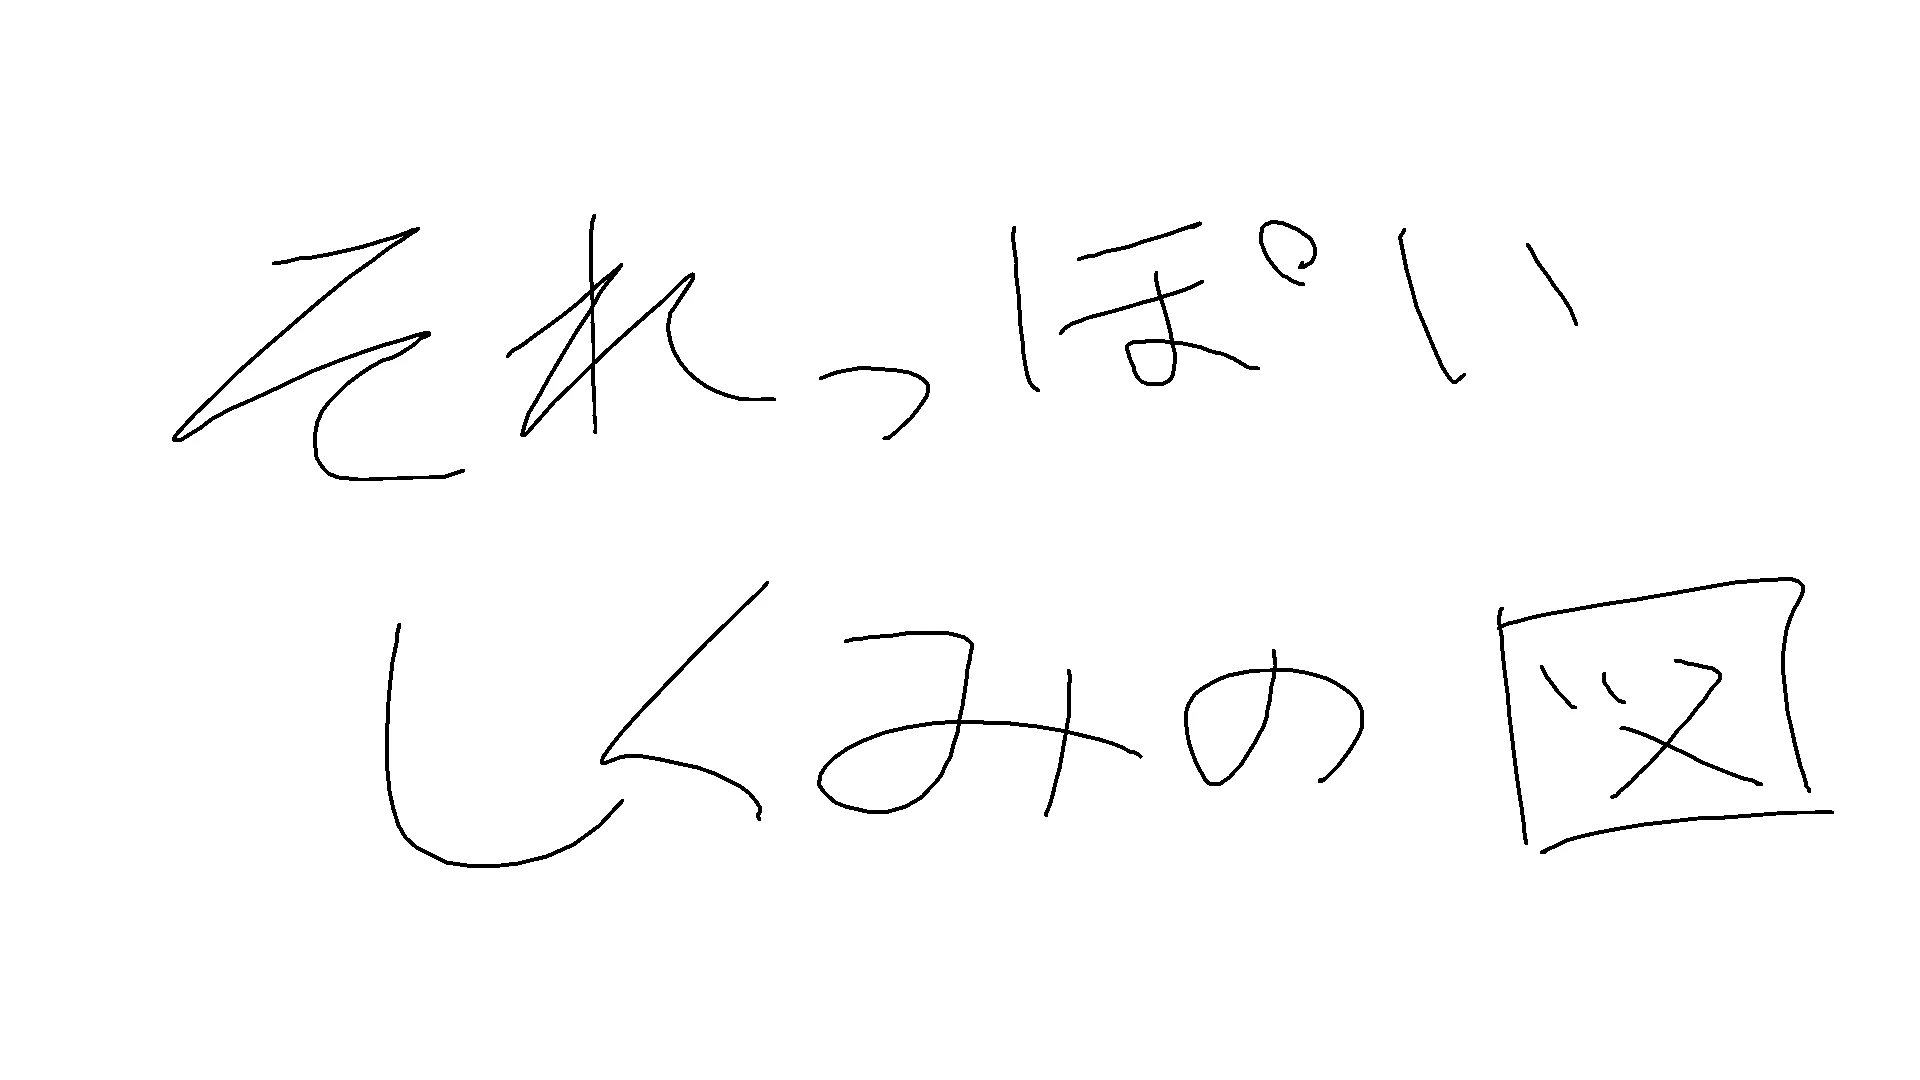 それっぽい
しくみの図